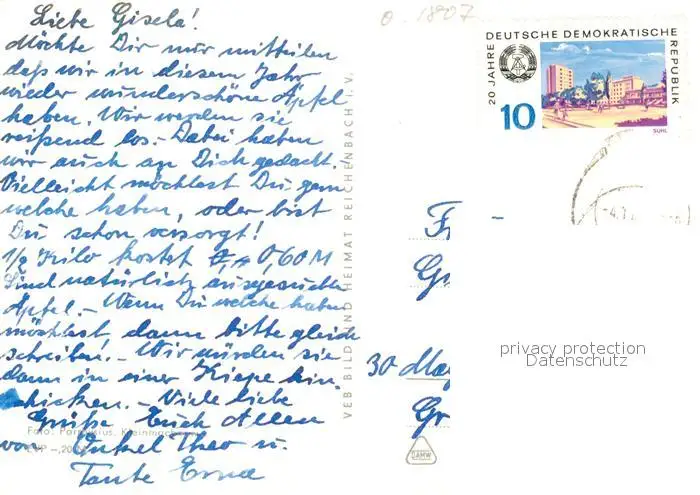 Liebe Gisela!
Möchte Dir nur mitteilen
daß wir in diesem Jahr
wieder wunderschöne Äpfel
haben. Wir werden sie
reißend los.- Dabei haben
wir auch an Dich gedacht.-
Vielleicht möchtest Du gern
welche haben, oder bist
Du schon versorgt!
1/2 Kilo kostet 0,60 M
Sind natürlich ausgesuchte
Äpfel.- Wenn Du welche haben
möchtest, dann bitte gleich
schreiben.- Wir würden sie
dann in einer Kiepe hin
schicken.- Viele liebe
Grüße Euch Allen
von Onkel Theo u.
Tante Erna
Foto:
EVP -,20
VEB BILD UND HEIMAT REICHENBACH I. V.
0-1807
20 JAHRE DEUTSCHE DEMOKRATISCHE REPUBLIK
10
SUHL
-4.1
F
Gr
30 Mag
Gr
DAMW
privacy protection
Datenschutz